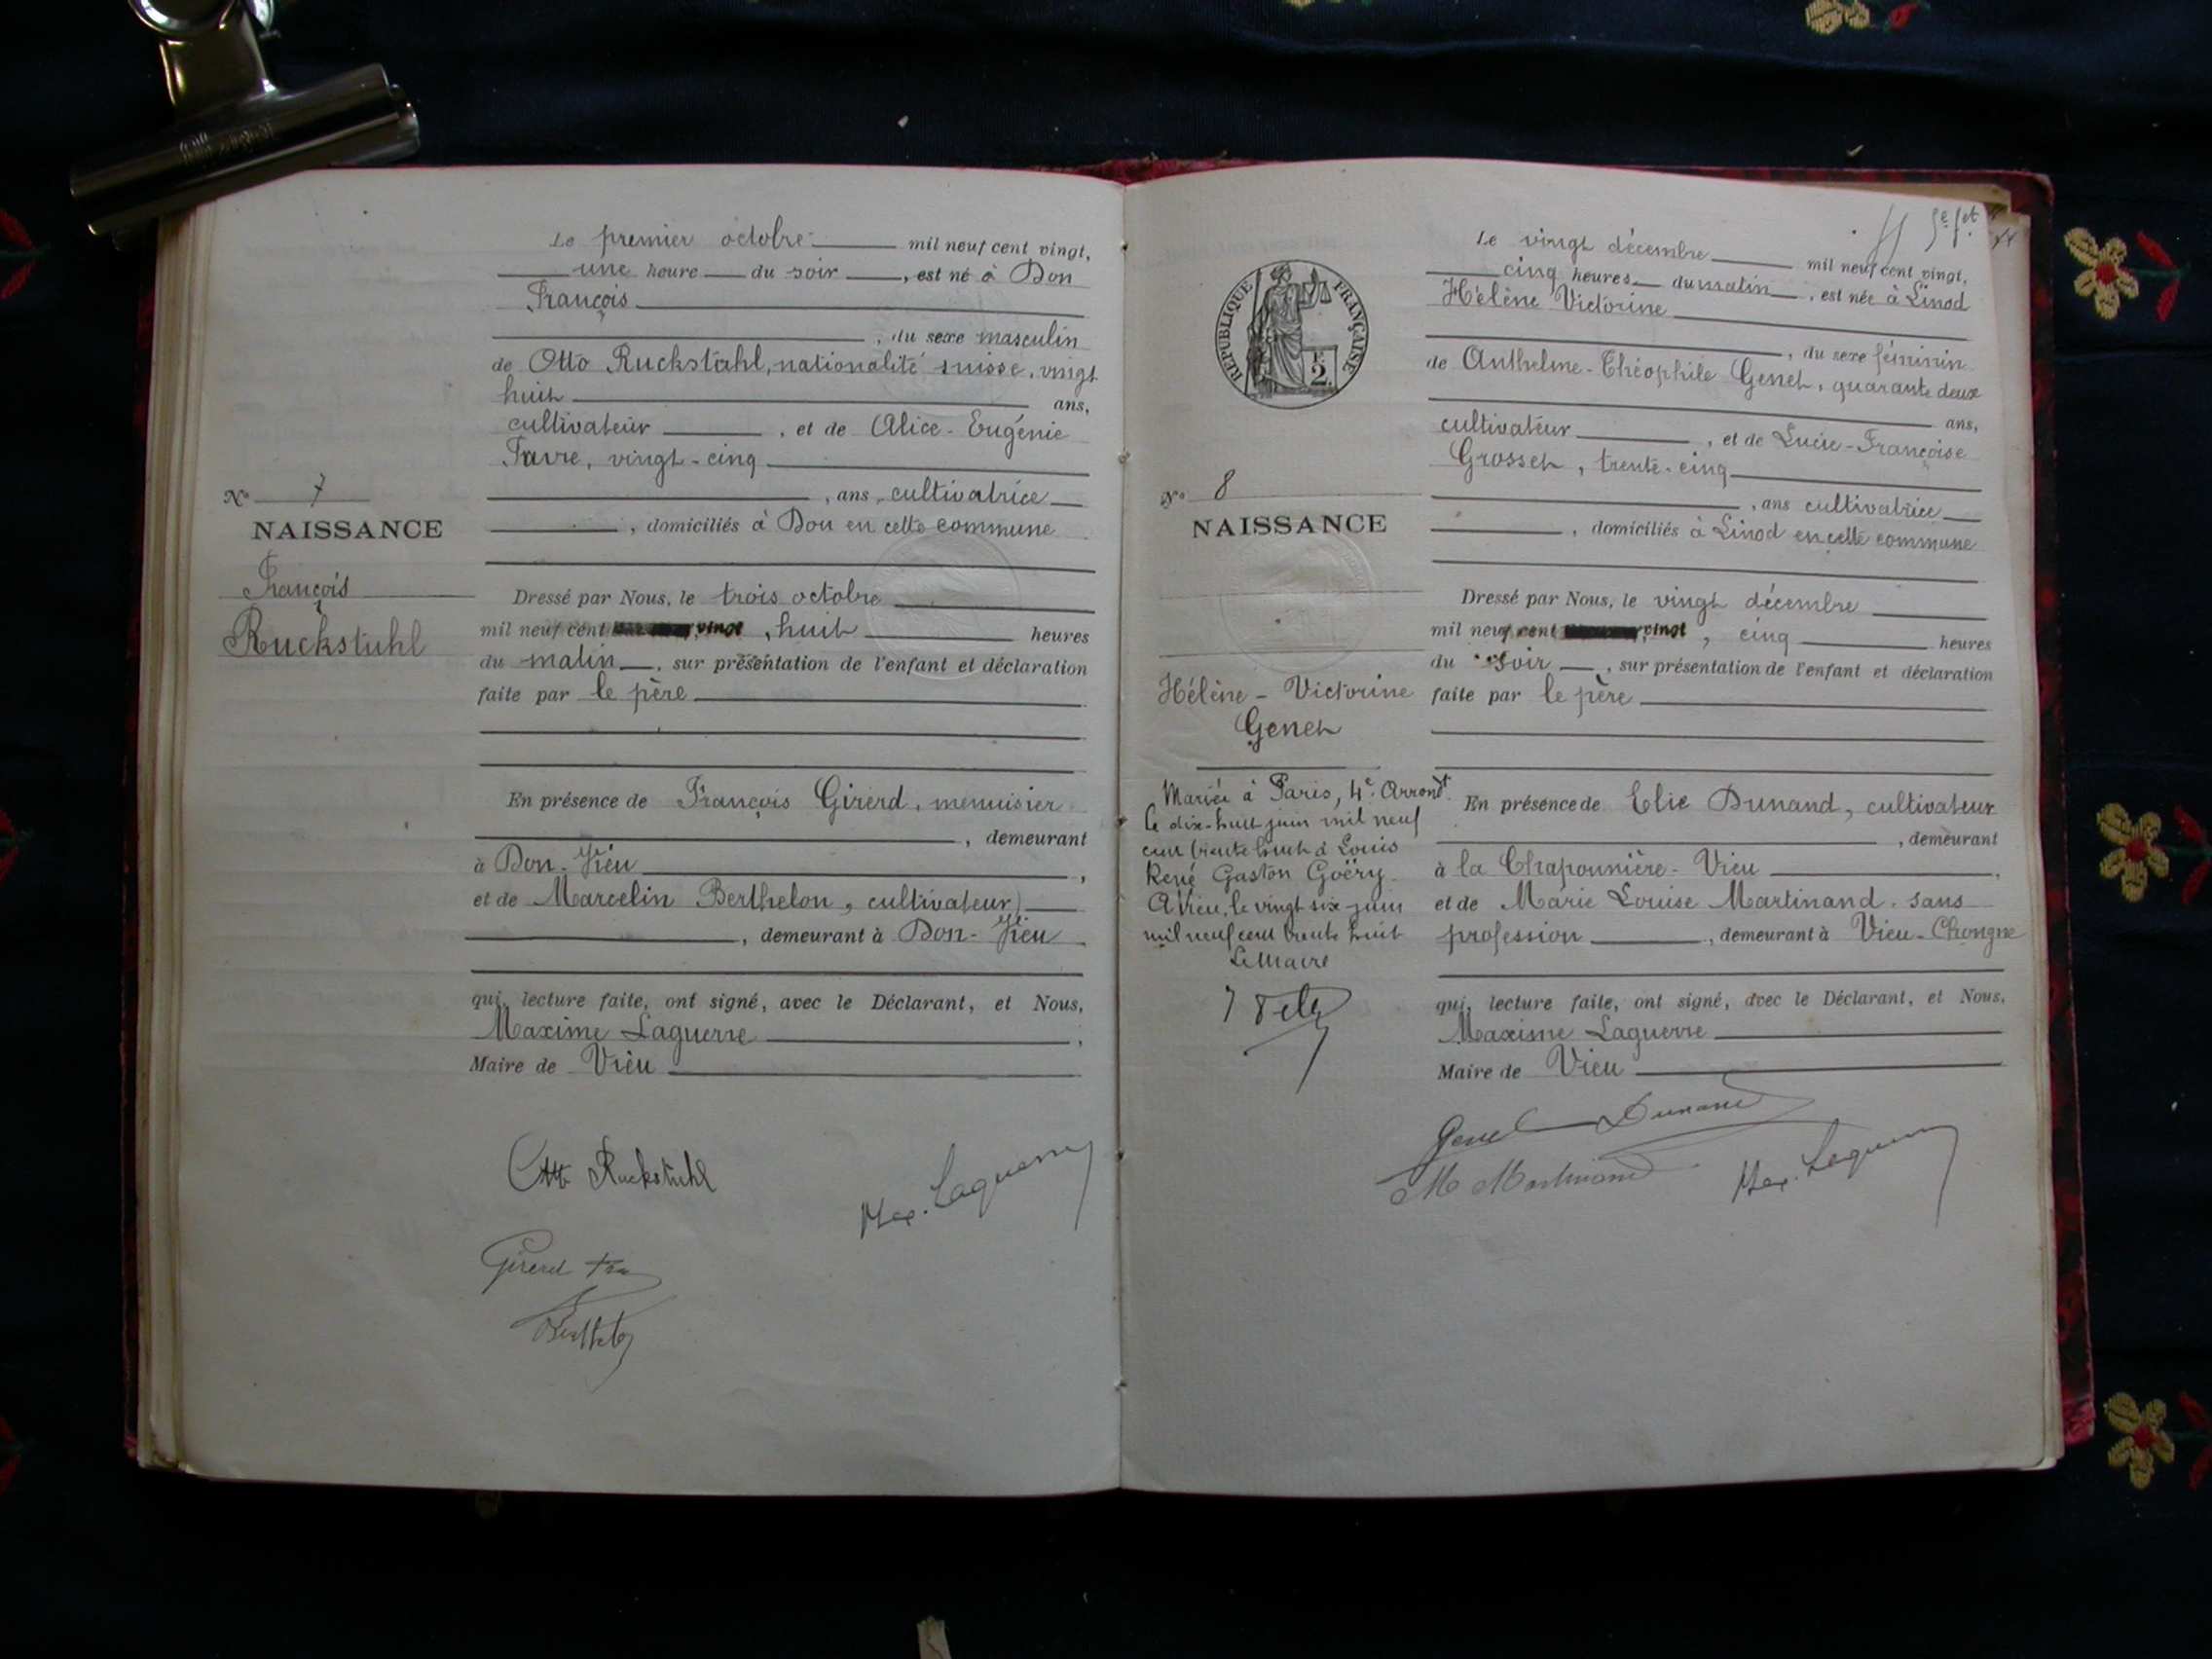 Le premier octobre mil neuf cent vingt,
une heure du soir, est né à Don
François
, du sexe masculin
de Otto Ruckstuhl, nationalité suisse, vingt
huit ans,
cultivateur, et de Alice-Eugénie
Favre, vingt-cinq
, ans, cultivatrice
, domiciliés à Don en cette commune
N° 7
NAISSANCE
François
Ruckstuhl
Dressé par Nous, le trois octobre
mil neuf cent vingt, huit heures
du matin, sur présentation de l'enfant et déclaration
faite par le père
En présence de François Girerd, menuisier
, demeurant
à Don-Vieu,
et de Marcelin Berthelon, cultivateur
, demeurant à Don-Vieu
qui, lecture faite, ont signé, avec le Déclarant, et Nous,
Maxime Laguerre,
Maire de Vieu
Otto Ruckstuhl
Max. Laguerre
Girerd
RÉPUBLIQUE FRANÇAISE
2
Le vingt décembre mil neuf cent vingt,
cinq heures du matin, est née à Linod
Hélène Victorine
, du sexe féminin
de Anthelme-Théophile Genet, quarante deux
ans,
cultivateur, et de Lucie-Françoise
Grosset, trente-cinq
, ans cultivatrice
, domiciliés à Linod en cette commune
N° 8
NAISSANCE
Hélène-Victorine
Genet
Mariée à Paris, 4e Arrondt
le dix-huit juin mil neuf
cent trente huit à Louis
René Gaston Goëry.
A Vieu, le vingt six juin
mil neuf cent trente huit
Le Maire
Dressé par Nous, le vingt décembre
mil neuf cent vingt, cinq heures
du soir, sur présentation de l'enfant et déclaration
faite par le père
En présence de Elie Dunand, cultivateur
, demeurant
à la Chaponnière-Vieu,
et de Marie Louise Martinand, sans
profession, demeurant à Vieu-Chongne
qui, lecture faite, ont signé, avec le Déclarant, et Nous,
Maxime Laguerre
Maire de Vieu
Genet Dunand
M Martinand Max. Laguerre